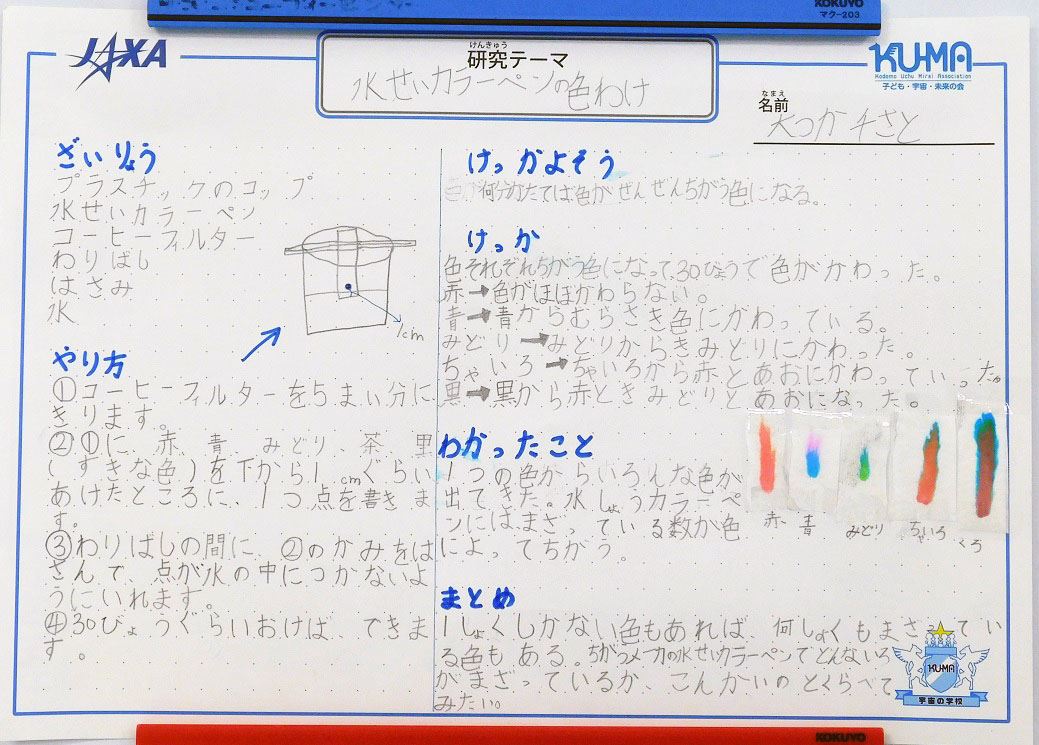 KOKUYO
マク-203
JAXA
けんきゅう
研究テーマ
水せいカラーペンの色わけ
KU-MA
Kodomo Uchu Mirai Association
子ども・宇宙・未来の会
なまえ
名前
大つか千さと
ざいりょう
プラスチックのコップ
水せいカラーペン
コーヒーフィルター
わりばし
はさみ
水
1cm
やり方
①コーヒーフィルターを5まい分に
きります。
②①に、赤、青、みどり、茶、黒
(すきな色)を下から1cmぐらい
あけたところに、1つ点を書きま
す。
③わりばしの間に、②のかみをは
さんで、点が水の中につかないよ
うにいれます。
④30びょうぐらいおけば、できま
す。
けっかよそう
何分かたてば色がぜんぜんちがう色になる。
けっか
色それぞれちがう色になって、30びょうで色がかわった。
赤→色がほぼかわらない。
青→青からむらさき色にかわっている。
みどり→みどりからきみどりにかわった。
ちゃいろ→ちゃいろから赤とあおにかわっていった。
黒→黒から赤ときみどりとあおになった。
わかったこと
1つの色からいろんな色が
出てきた。水しょうカラーペ
ンにはまざっている数が色
によってちがう。
赤
青
みどり
ちゃいろ
くろ
まとめ
1しょくしかない色もあれば、何しょくもまざってい
る色もある。ちがうメーカの水せいカラーペンでどんないろ
がまざっているか、こんかいのとくらべて
みたい。
KU-MA
宇宙の学校
KOKUYO